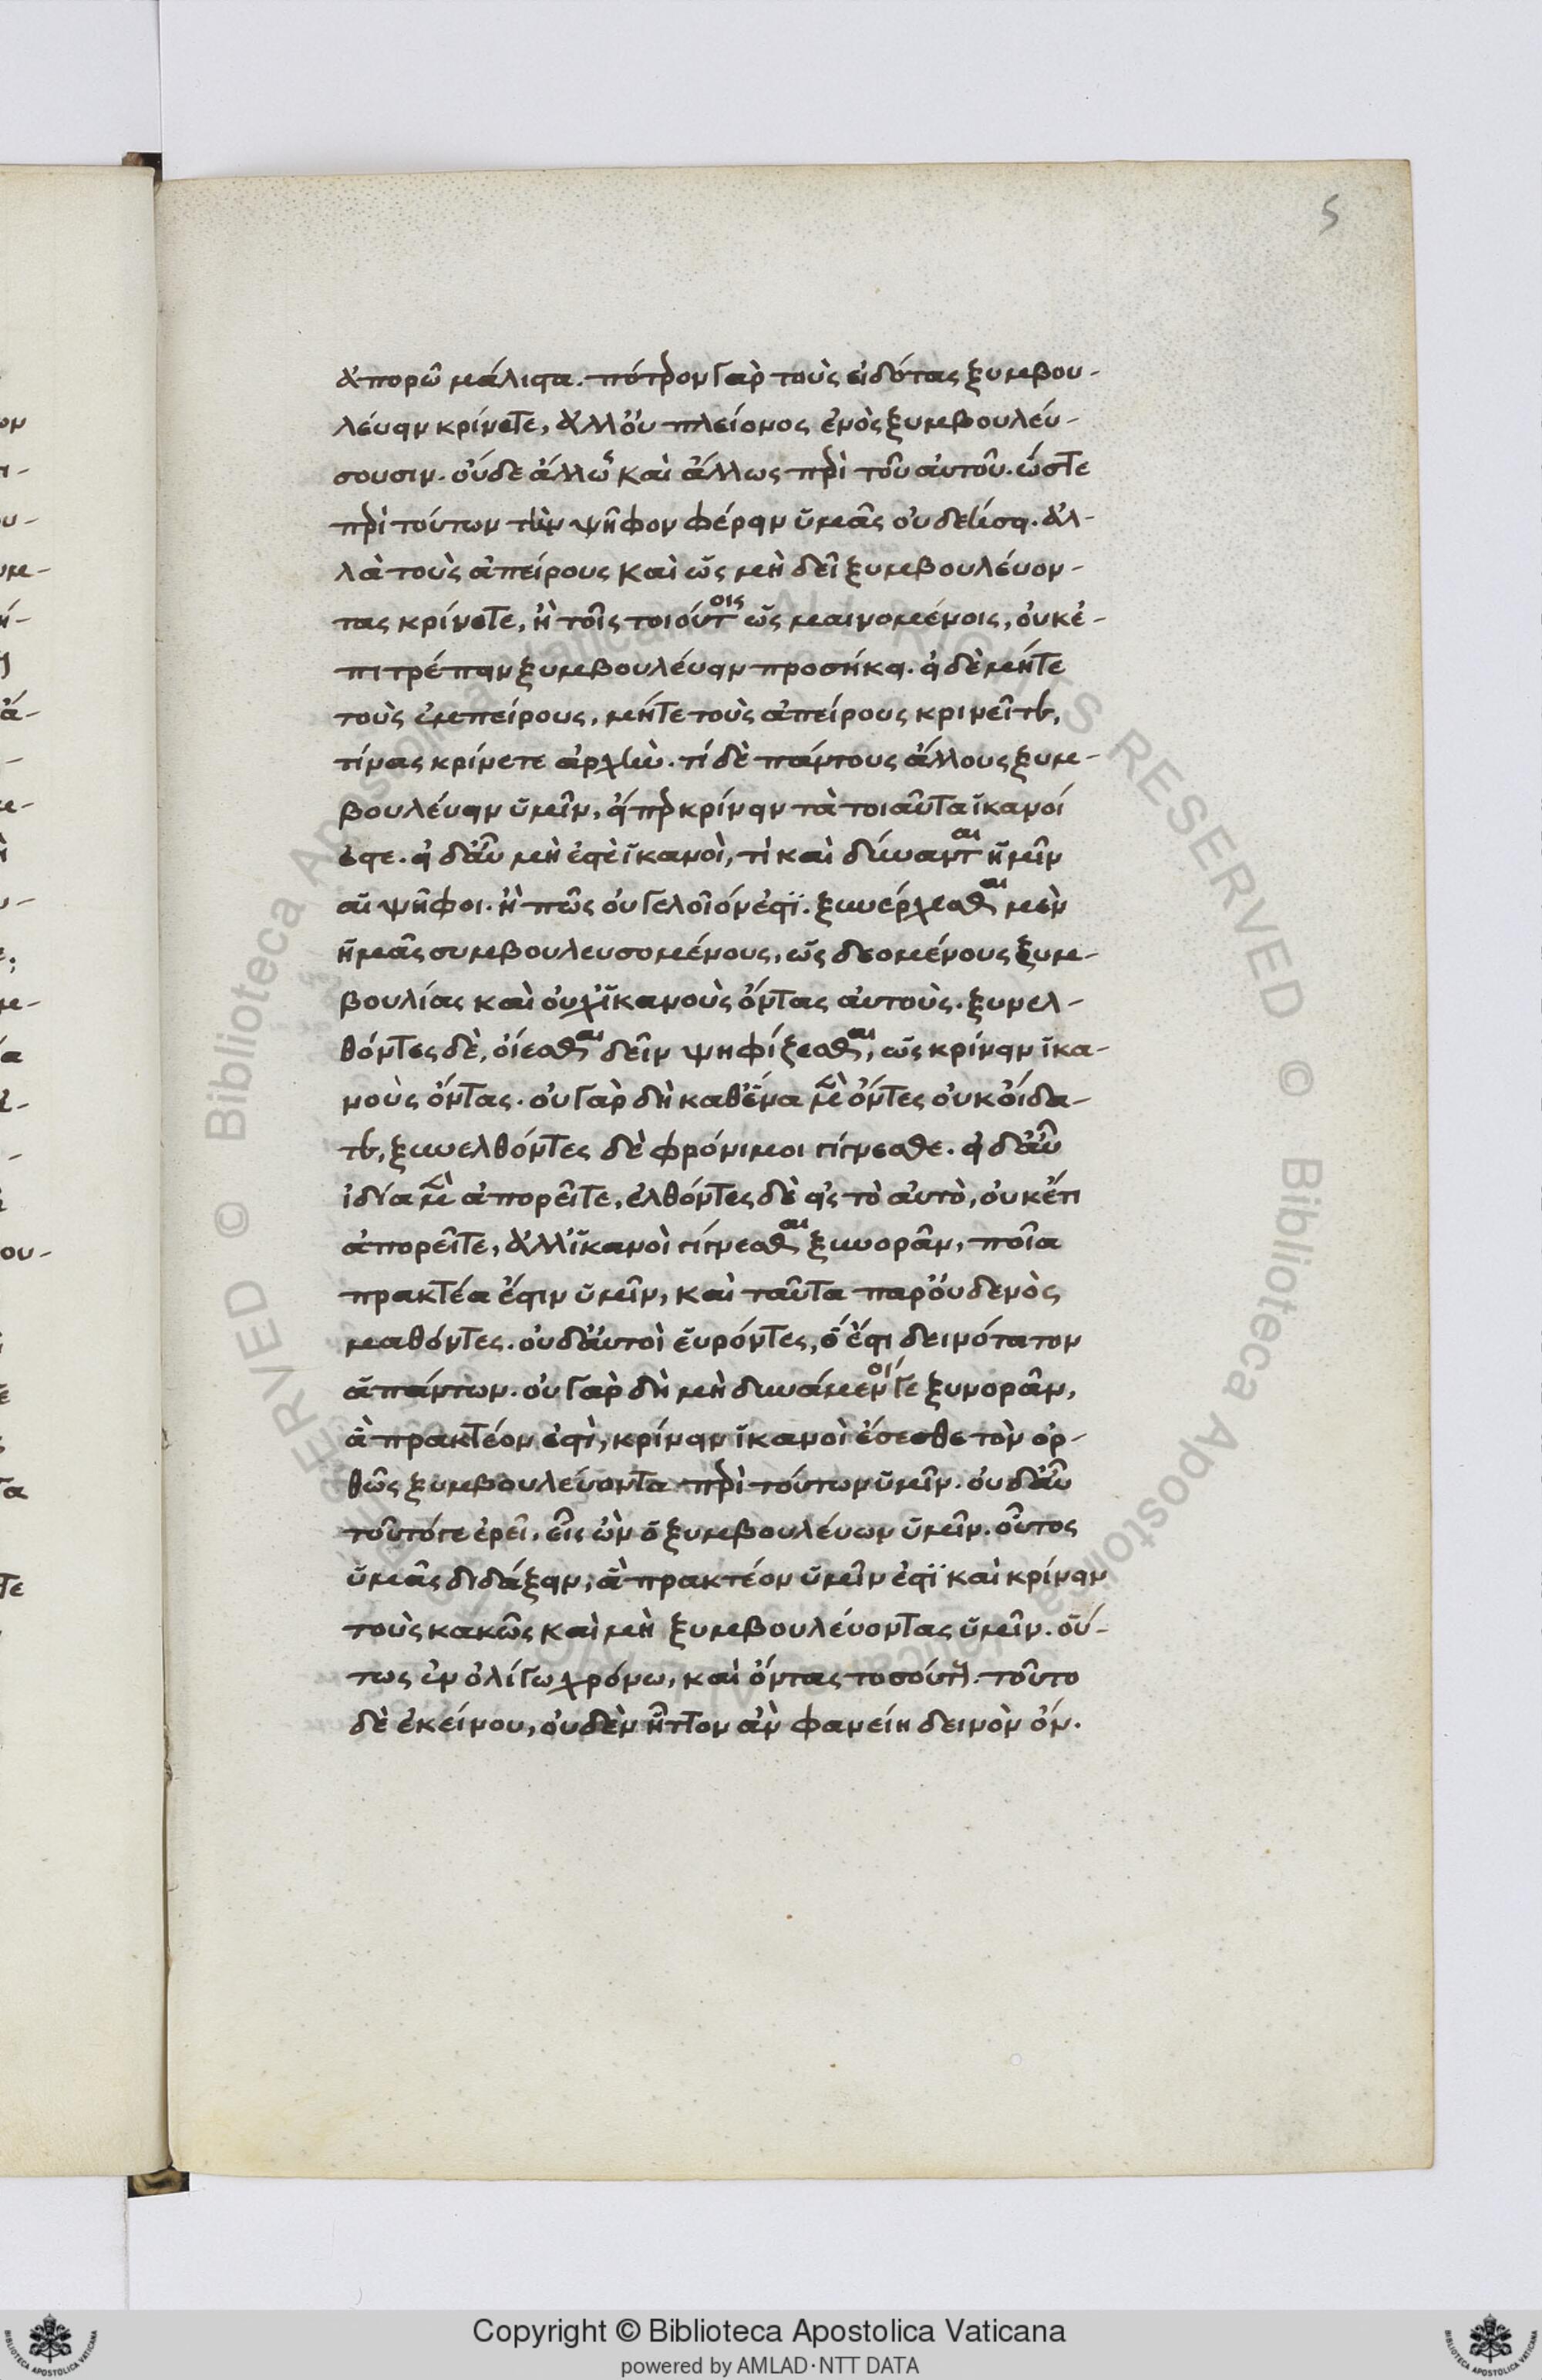 5
ἀπορῶ μάλιστα. πότερον γὰρ τοὺς εἰδότας ξυμβου-
λεύειν κρίνετε, ἀλλ' οὐ πλείονος ἑνὸς ξυμβουλεύ-
σουσιν. οὐδε ἄλλως καὶ ἄλλως περὶ τοῦ αὐτοῦ. ὥστε
περὶ τούτων τὴν ψῆφον φέρειν ὑμᾶς οὐ δεήσει. ἀλ-
λὰ τοὺς ἀπείρους καὶ ὡς μὴ δεῖ ξυμβουλεύον-
τας κρίνετε, ἢ τοῖς τοιούτοις ὡς μαινομένοις, οὐκ ἐ-
πιτρέπειν ξυμβουλεύειν προσήκει. εἰ δὲ μήτε
τοὺς ἐμπείρους, μήτε τοὺς ἀπείρους κρινεῖτε,
τίνας κρίνετε ἀρχὴν. τί δὲ πάντους ἄλλους ξυμ-
βουλεύειν ὑμῖν, εἴπερ κρίνειν τὰ τοιαῦτα ἱκανοί
ἐστε. εἰ δ' αὖ μὴ ἐστὲ ἱκανοὶ, τί καὶ δύνανται ἡμῖν
αἱ ψῆφοι. ἢ πῶς οὐ γελοῖόν ἐστϊ. ξυνέρχεσθαι μὲν
ἡμᾶς συμβουλευσομένους, ὡς δεομένους ξυμ-
βουλίας καὶ οὐχ ἱκανοὺς ὄντας αὐτοὺς. ξυνελ-
θόντες δὲ, οἴεσθαι δεῖν ψηφίζεσθαι, ὡς κρίνειν ἱκα-
νοὺς ὄντας. οὐ γὰρ δὴ καθ' ἕνα μὲν ὄντες οὐκ οἴδα-
τε, ξυνελθόντες δὲ φρόνιμοι γίγνεσθε. εἰ δ' αὖ
ἰδία μὲν ἀπορεῖτε, ἐλθόντες δὲ εἰς τὸ αὐτὸ, οὐκέτι
ἀπορεῖτε, ἀλλ' ἱκανοὶ γίγνεσθαι ξυνορᾶν, ποῖα
πρακτέα ἔστιν ὑμῖν, καὶ ταῦτα παρ' οὐδενὸς
μαθόντες. οὐδ' αὐτοὶ εὑρόντες, ὅ ἐστι δεινότατον
ἁπάντων. οὐ γὰρ δὴ μὴ δυνάμενοί γε ξυνορᾶν,
ἃ πρακτέον ἐστὶ, κρίνειν ἱκανοὶ ἔσεσθε τὸν ὀρ-
θῶς ξυμβουλεύοντα περὶ τούτων ὑμῖν. οὐδ' αὖ
τοῦτό γε ἐρεῖ, εἷς ὢν ὁ ξυμβουλεύων ὑμῖν. οὗτος
ὑμᾶς διδάξειν, ἃ πρακτέον ὑμῖν ἐστϊ καὶ κρίνειν
τοὺς κακῶς καὶ μὴ ξυμβουλεύοντας ὑμῖν. οὕ-
τως ἐν ὀλίγω χρόνω, καὶ ὄντας τοσούτους. τοῦτο
δὲ ἐκείνου, οὐδὲν ἧττον ἂν φανείη δεινὸν ὄν.
Copyright © Biblioteca Apostolica Vaticana
powered by AMLAD·NTT DATA